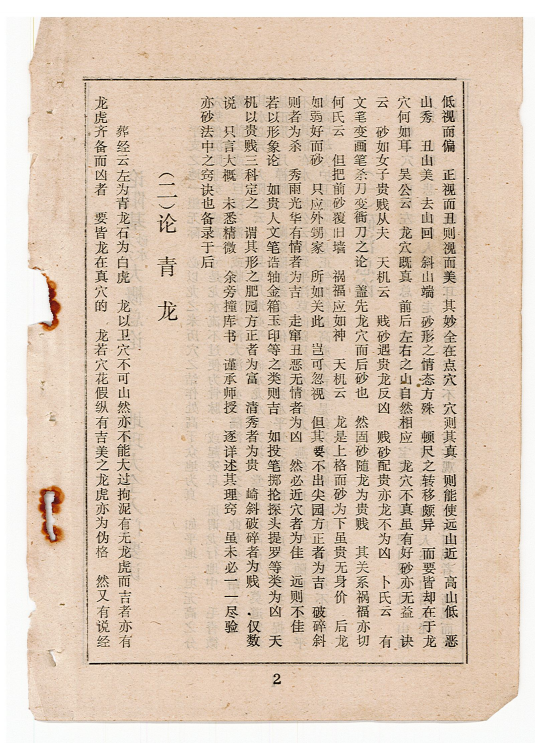 低视而偏　正视而丑则视而美　其妙全在点穴　不穴则其真　则能使远山近　高山低　恶
山秀　丑山美　去山回　斜山端　砂形之情态方殊　顿尺之转移颇异　而要皆却在于龙
穴何如耳　吴公云　龙穴既真　前后左右之山自然相应　龙穴不真虽有好砂亦无益　诀
云　砂如女子贵贱从夫　天机云　贱砂遇贵龙反凶　贱砂配贵亦龙不为凶　卜氏云　有
文笔变画笔杀刀变衙刀之论　盖先龙穴而后砂也　然固砂随龙为贵贱　其关系祸福亦切
何氏云　但把前砂覆旧墙　祸福应如神　天机云　龙是上格而砂为下虽贵无身价　后龙
如弱好而砂　只应外甥家　所如关此　岂可忽视　但其要不出尖园方正者为吉　破碎斜
则者为杀　秀雨光华有情者为吉　走窜丑恶无情者为凶　然必近穴者为佳　远则不佳
若以形象论　如贵人文笔诰轴金箱玉印等之类则吉　如投笔掷抢探头提罗等类为凶　天
机以贵贱三科定之　谓其形之肥园方正者为富　清秀者为贵　崎斜破碎者为贱　仅数
说　只言大概　未悉精微　余旁撞库书　谨承师授　逐详述其理窍　虽未必一一尽验
亦砂法中之窍诀也备录于后
（二）论青龙
葬经云左为青龙石为白虎　龙以卫穴不可山然亦不能大过拘泥有无龙虎而吉者亦有
龙虎齐备而凶者　要皆龙在真穴的　龙若穴花假纵有吉美之龙虎亦为伪格　然又有说经
2